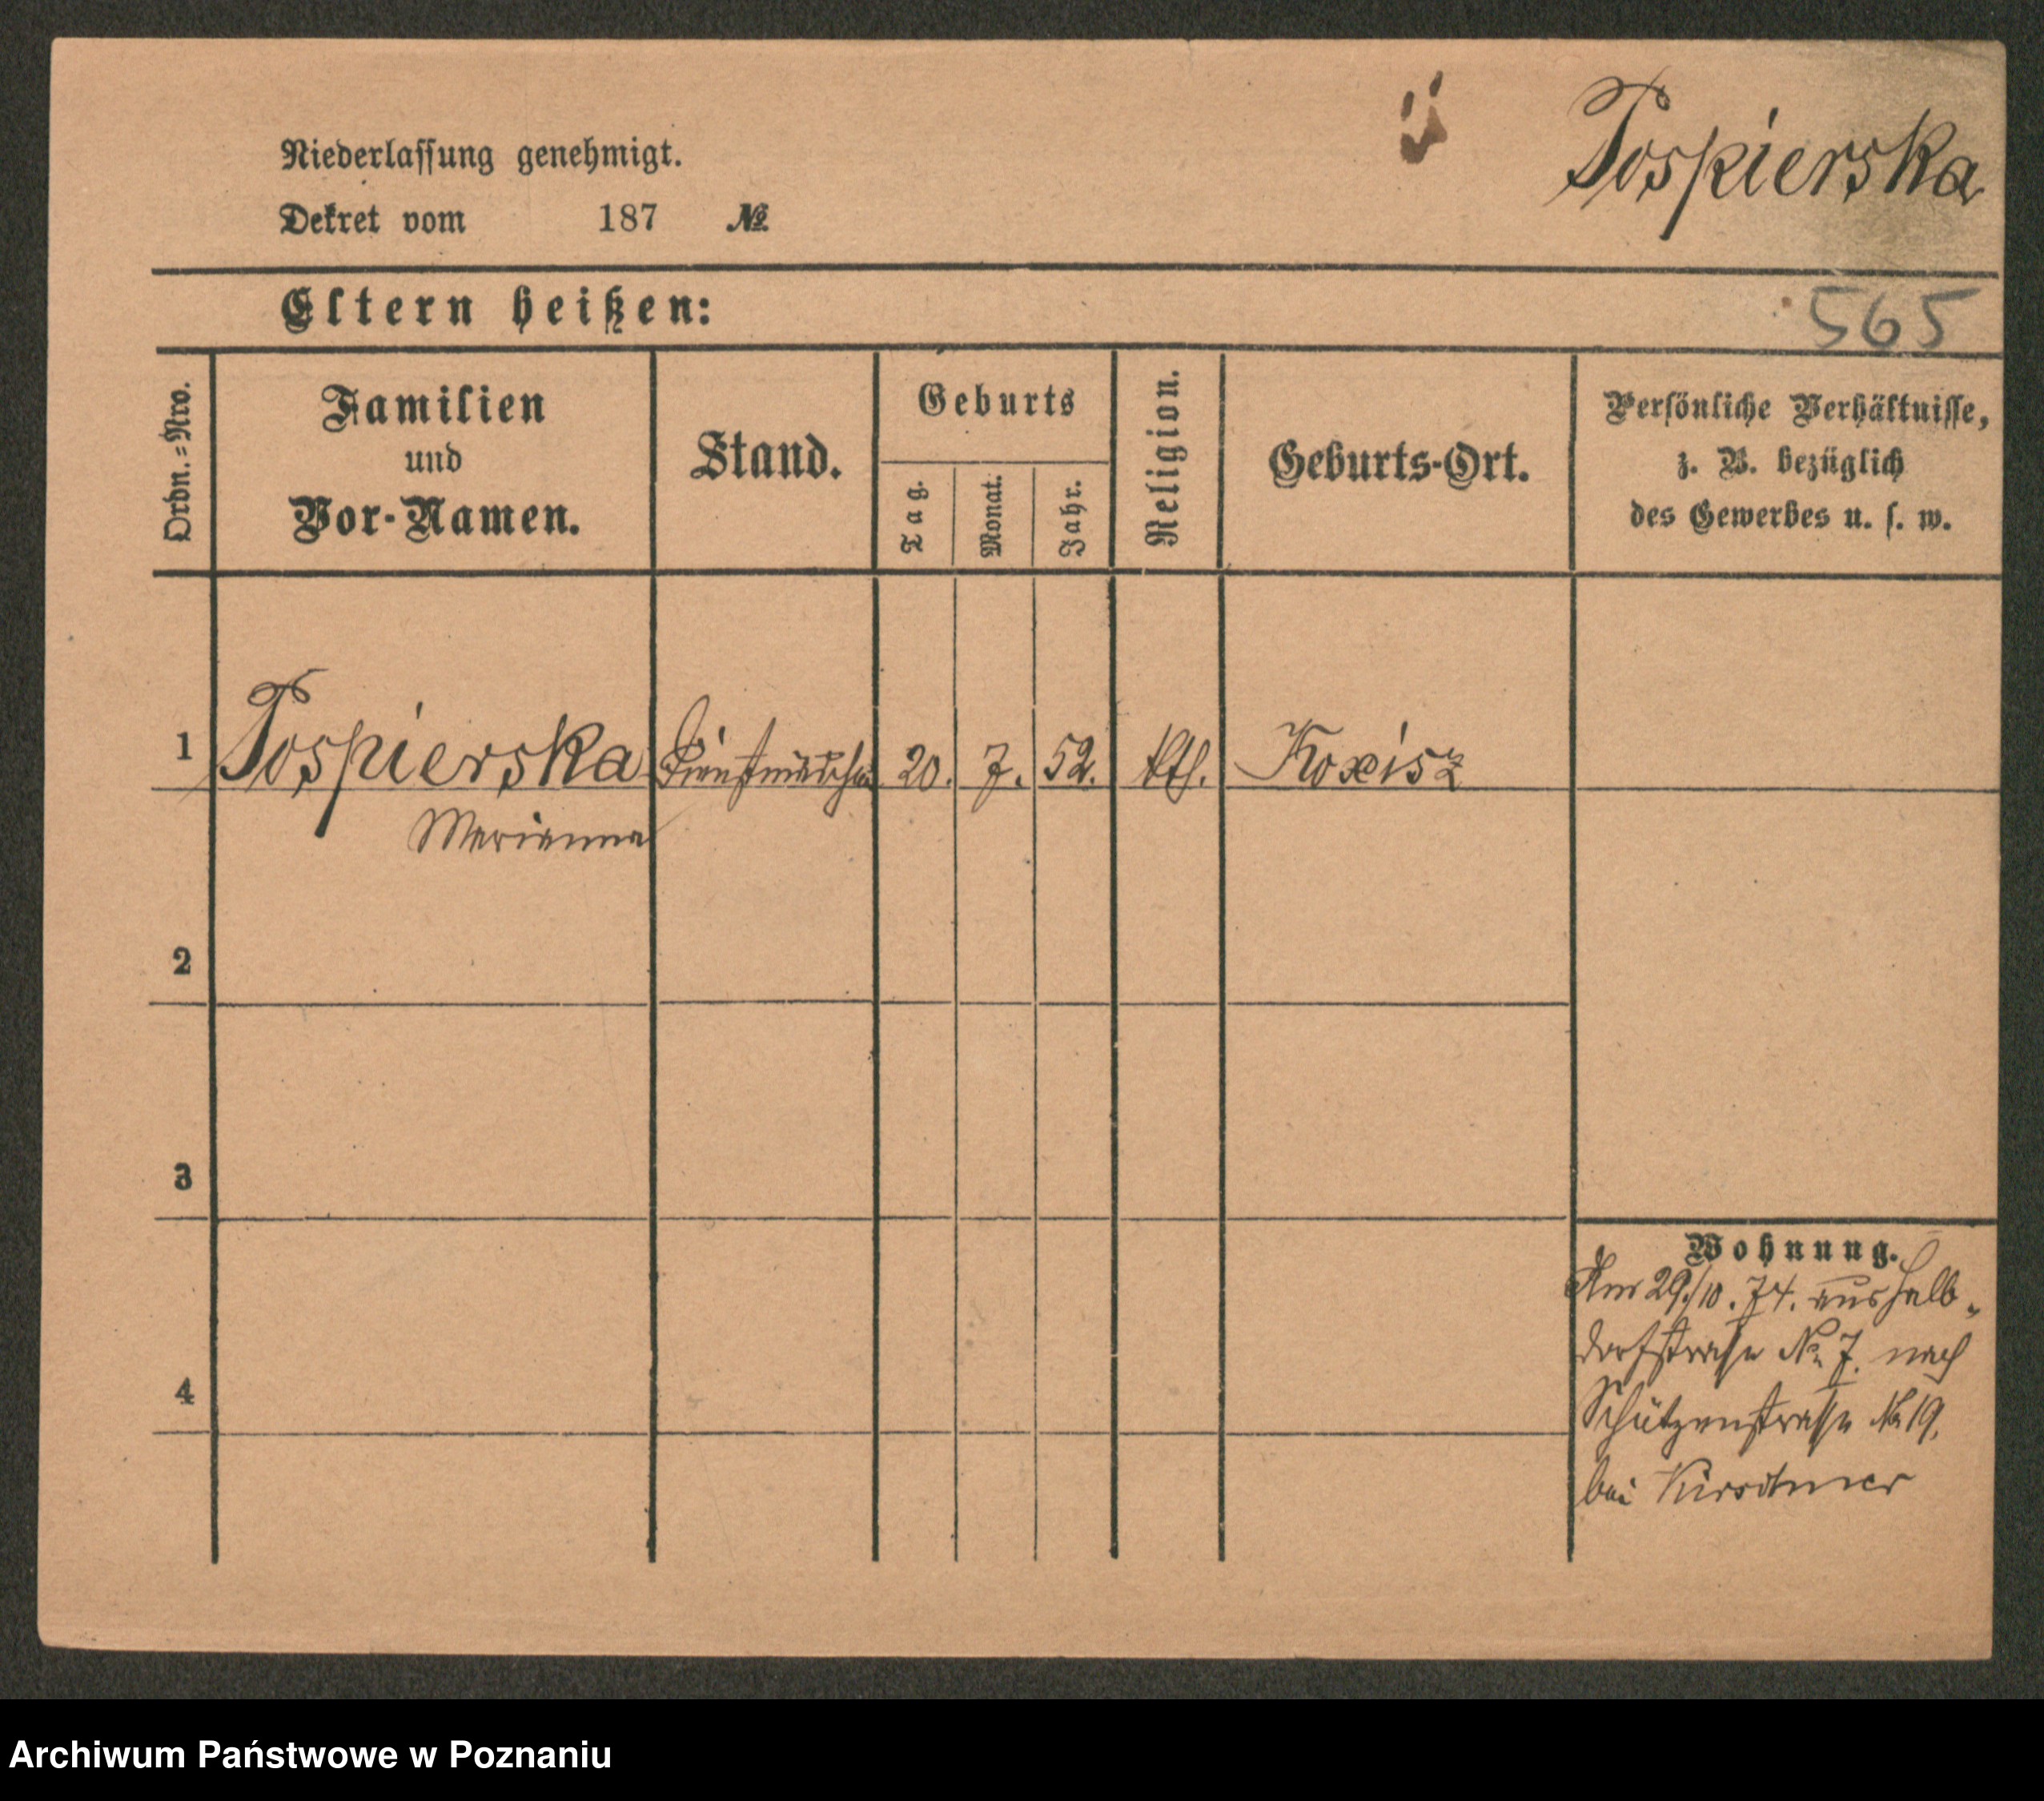 Niederlassung genehmigt.
Pospierska
Dekret vom 187 №
Eltern heißen:
565
Ordn.-Nro.
Familien
und
Vor-Namen.
Stand.
Geburts
Tag.
Monat.
Jahr.
Religion.
Geburts-Ort.
Persönliche Verhältnisse,
z. B. bezüglich
des Gewerbes u. s. w.
1 Pospierska Dienstmädchen 20. 7. 52. kth.
Marianna
2
3
4
Wohnung.
Am 29./10. 74. aus Halb-
dorfstraße No 7. nach
Schützenstraße No 19.
bei Kirschner
Archiwum Państwowe w Poznaniu